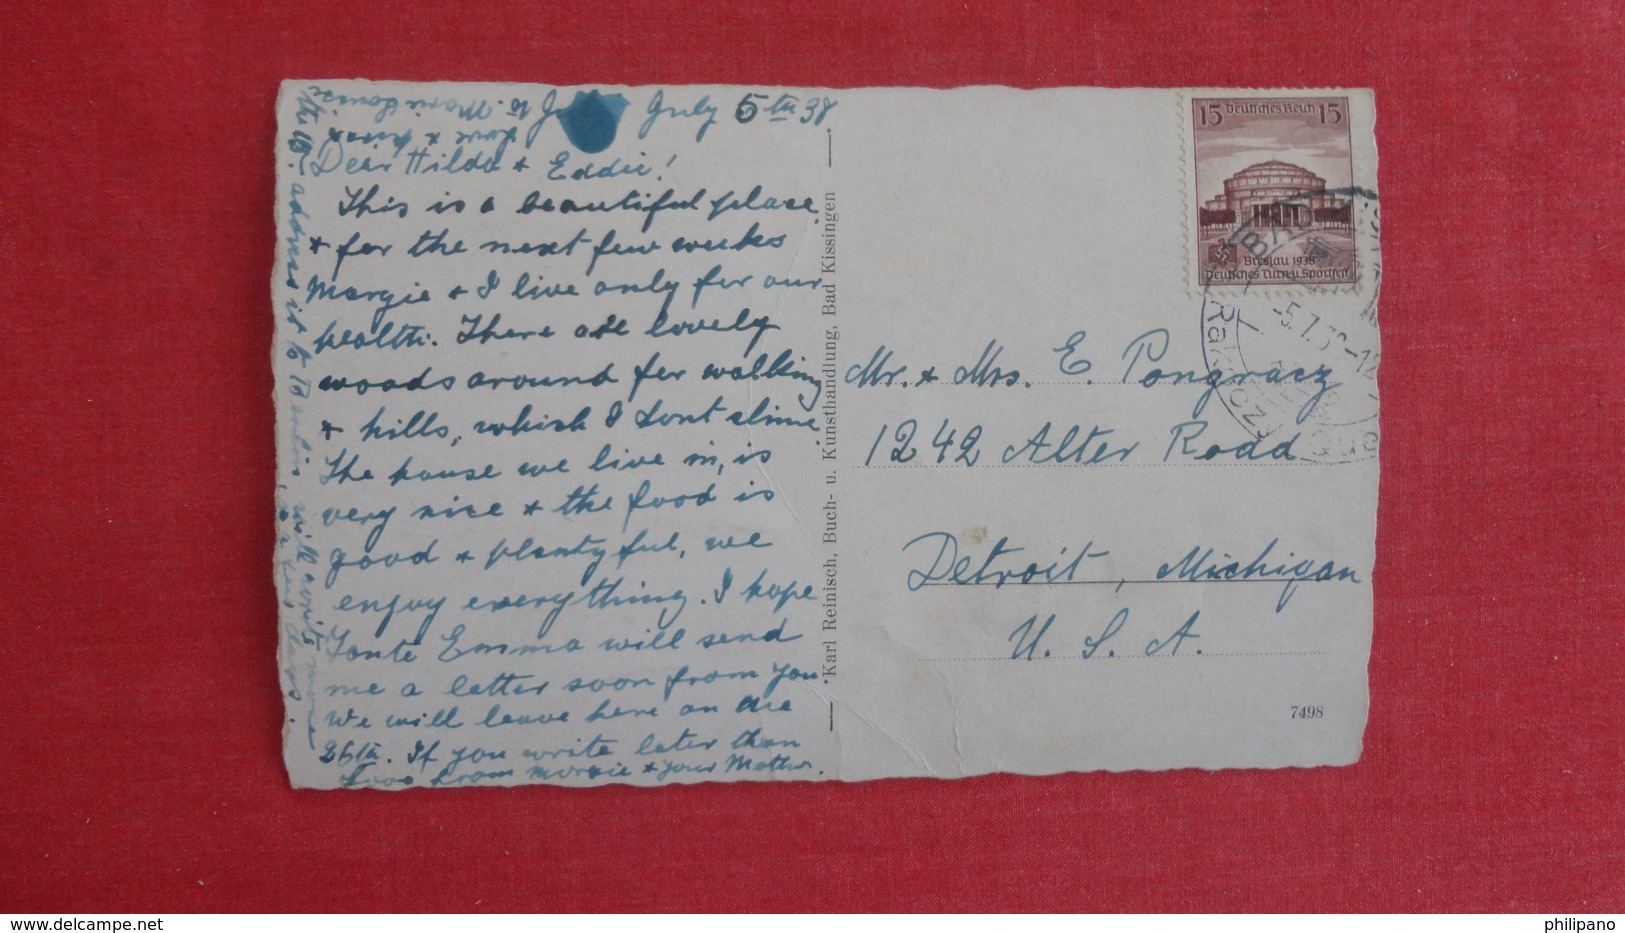 July 5th 38
Love & kisses
to Marie Louise
Dear Hilda & Eddie!
This is a beautiful place
& for the next few weeks
Margie & I live only for our
health. There are lovely
woods around for walking
& hills, which I dont slime.
The house we live in, is
very nice & the food is
good & plentyful, we
enjoy everything. I hope
Tante Emma will send
me a letter soon from you.
We will leave here on the
26th. If you write later than
address is to Berlin will write more
Love from Margie & your Mother.
Karl Reinisch, Buch- u. Kunsthandlung, Bad Kissingen
15 Deutsches Reich 15
Breslau 1938
Deutsches Turn u. Sportfest
Mr. & Mrs. E. Pongracz
1242 Alter Road
Detroit, Michigan
U. S. A.
7498
philipano